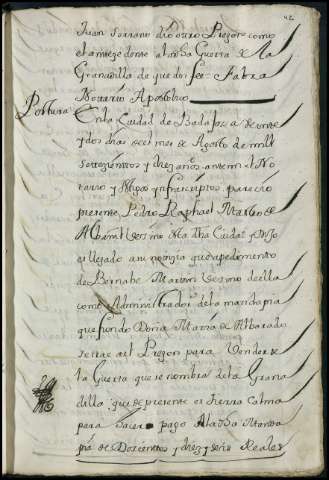 42
Juan Soriano dio otro Pregon como
el antezedente a la dha Guerta de la
Granadilla de que doy fee = Fabra
Notario Apostolico
Postura
En la Ciudad de Badajoz a veinte
y dos dias del mes de Agosto de mill
setezientos y diez años ante mi el No
tario y testigos ynfrascriptos parecio
presente Pedro Raphael Maestro de
Albañil vezino de la dha Ciudad y Dijo
es llegado a su notizia que a pedimento
de Bernabe Martin vezino de ella
como Administrador de la manda pia
que fundo Doña Maria de Albarado
se trae al Pregon para Vender
la Guerta que se nombra de la Grana
dilla que de presente es tierra Calma
para hacer pago a la dha Manda
pia de Docientos y diez y seis Reales